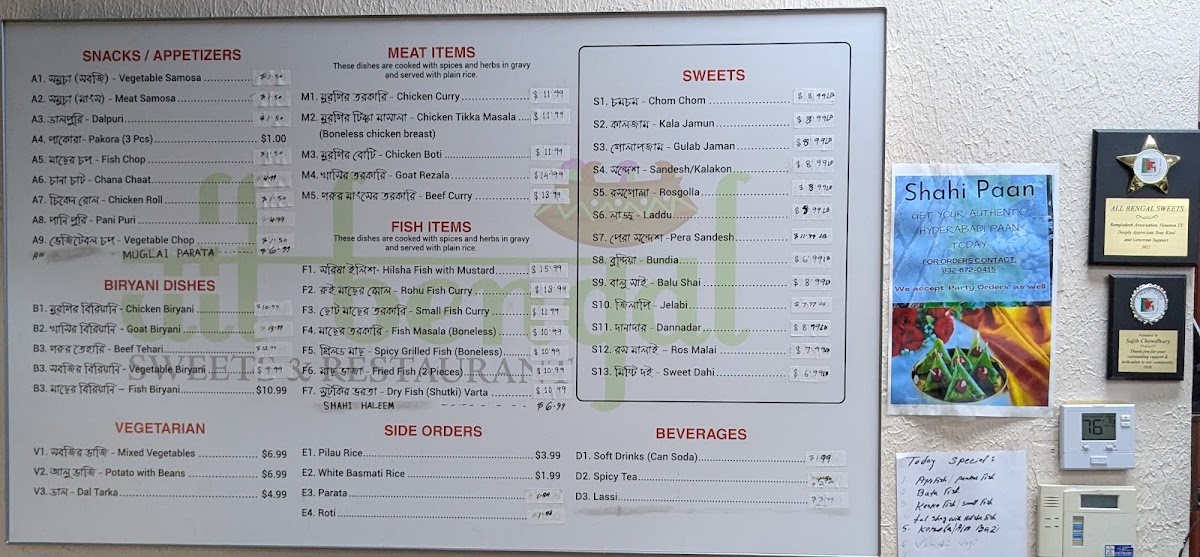 SNACKS / APPETIZERS
A1. সমুচা (সবজি) - Vegetable Samosa $1.50
A2. সমুচা (মাংস) - Meat Samosa $1.50
A3. ডালপুরি - Dalpuri $1.50
A4. পাকোরা - Pakora (3 Pcs) $1.00
A5. মাছের চপ - Fish Chop $1.50
A6. চানা চাট - Chana Chaat 4.99
A7. চিকেন রোল - Chicken Roll $1.50
A8. পানি পুরি - Pani Puri 4.99
A9. ভেজিটেবল চপ - Vegetable Chop $1.50
MUGLAI PARATA $6.99
BIRYANI DISHES
B1. মুরগির বিরিয়ানি - Chicken Biryani
B2. খাসির বিরিয়ানি - Goat Biryani
B3. গরুর তেহারি - Beef Tehari
B3. সবজির বিরিয়ানি - Vegetable Biryani
B3. মাছের বিরিয়ানি - Fish Biryani $10.99
VEGETARIAN
V1. সবজির ভাজি - Mixed Vegetables $6.99
V2. আলু ভাজি - Potato with Beans $6.99
V3. ডাল - Dal Tarka $4.99
MEAT ITEMS
These dishes are cooked with spices and herbs in gravy
and served with plain rice.
M1. মুরগির তরকারি - Chicken Curry $11.99
M2. মুরগির টিক্কা মাসালা - Chicken Tikka Masala $11.99
(Boneless chicken breast)
M3. মুরগির বোটি - Chicken Boti $11.99
M4. খাসির তরকারি - Goat Rezala $14.99
M5. গরুর মাংসের তরকারি - Beef Curry $13.99
FISH ITEMS
These dishes are cooked with spices and herbs in gravy
and served with plain rice.
F1. সরিষা ইলিশ - Hilsha Fish with Mustard $15.99
F2. রুই মাছের ঝোল - Rohu Fish Curry $13.99
F3. ছোট মাছের তরকারি - Small Fish Curry $11.99
F4. মাছের তরকারি - Fish Masala (Boneless) $10.99
F5. গ্রিলড মাছ - Spicy Grilled Fish (Boneless) $10.99
F6. মাছ ভাজা - Fried Fish (2 Pieces) $10.99
F7. সুটকির ভরতা - Dry Fish (Shutki) Varta $10.99
SHAHI HALEEM $6.99
SIDE ORDERS
E1. Pilau Rice $3.99
E2. White Basmati Rice $1.99
E3. Parata
E4. Roti
SWEETS
S1. চমচম - Chom Chom $8.99LB
S2. কালজাম - Kala Jamun $8.99LB
S3. গোলাপজাম - Gulab Jaman $8.99LB
S4. সন্দেশ - Sandesh/Kalakon $8.99LB
S5. রসগোল্লা - Rosgolla $8.99LB
S6. লাড্ডু - Laddu $8.99LB
S7. পেরা সন্দেশ - Pera Sandesh $11.99 LB
S8. বুন্দিয়া - Bundia $6.99LB
S9. বালু সাই - Balu Shai $8.99LB
S10. জিলাপি - Jelabi $7.99LB
S11. দানাদার - Dannadar $8.99LB
S12. রস মালাই - Ros Malai $7.99LB
S13. মিষ্টি দই - Sweet Dahi $6.99LB
BEVERAGES
D1. Soft Drinks (Can Soda) $1.99
D2. Spicy Tea
D3. Lassi
all bengal
SWEETS & RESTAURANT
Shahi Paan
GET YOUR AUTHENTIC
HYDERABADI PAAN
TODAY
FOR ORDERS CONTACT
832-672-0415
We accept Party Orders as well
ALL BENGAL SWEETS
Bangladesh Association, Houston TX
Deeply Appreciate Your Kind
and Generous Support
Presented to
Sajib Chowdhury
Thank you for your
outstanding support &
dedication to our community
76
Today Special:
Bata fish
Keski fish / small fish